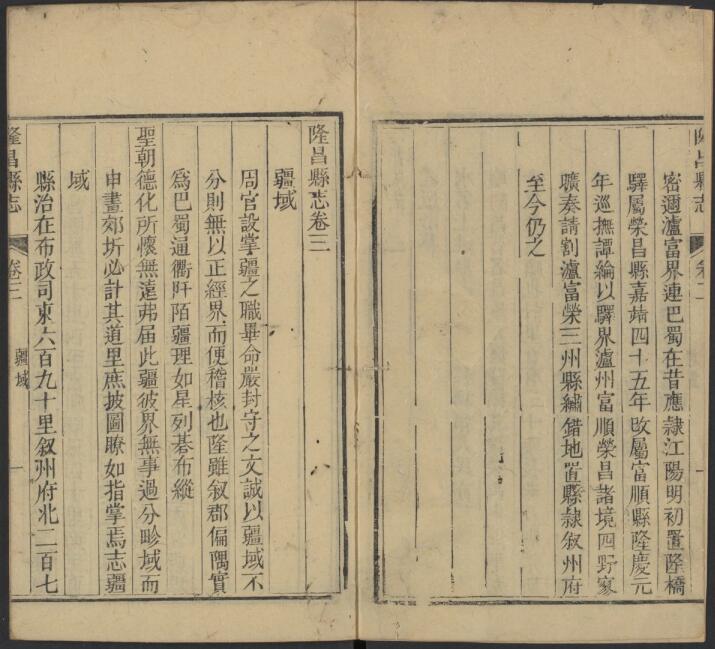 隆昌縣志
卷二
密邇瀘富界連巴蜀在昔應隸江陽明初置隆橋
驛屬榮昌縣嘉靖四十五年改屬富順縣隆慶元
年巡撫譚綸以驛界瀘州富順榮昌諸境四野寥
曠奏請割瀘富榮三州縣繡錯地置縣隸叙州府
至今仍之
隆昌縣志卷三
疆域
周官設掌疆之職畢命嚴封守之文誠以疆域不
分則無以正經界而便稽核也隆雖叙郡偏隅實
爲巴蜀通衢阡陌疆理如星列碁布縱
聖朝德化所懷無遠弗届此疆彼界無事過分畛域而
申畫郊圻必計其道里庶披圖瞭如指掌焉志疆
域
縣治在布政司東六百九十里叙州府北二百七
隆昌縣志
卷三
疆域
一